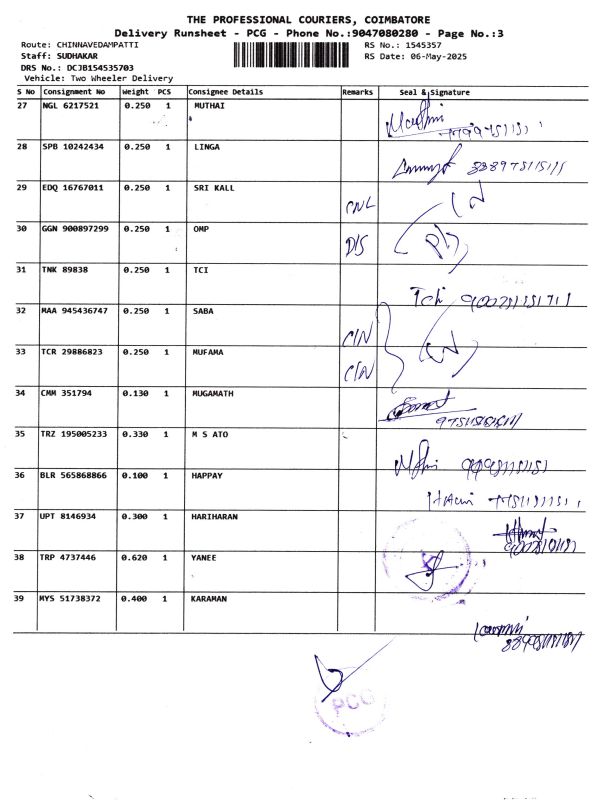 THE PROFESSIONAL COURIERS, COIMBATORE
Delivery Runsheet - PCG - Phone No.:9047080280 - Page No.:3
Route: CHINNAVEDAMPATTI RS No.: 1545357
Staff: SUDHAKAR RS Date: 06-May-2025
DRS No.: DCJB154535703
Vehicle: Two Wheeler Delivery
S No Consignment No Weight PCS Consignee Details Remarks Seal & Signature
27 NGL 6217521 0.250 1 MUTHAI
28 SPB 10242434 0.250 1 LINGA
29 EDQ 16767011 0.250 1 SRI KALL
30 GGN 900897299 0.250 1 OMP D/S
31 TNK 89838 0.250 1 TCI
32 MAA 945436747 0.250 1 SABA
33 TCR 29886823 0.250 1 MUFAMA
34 CMM 351794 0.130 1 MUGAMATH
35 TRZ 195005233 0.330 1 M S ATO
36 BLR 565868866 0.100 1 HAPPAY
37 UPT 8146934 0.300 1 HARIHARAN
38 TRP 4737446 0.620 1 YANEE
39 MYS 51738372 0.400 1 KARAMAN
PCG